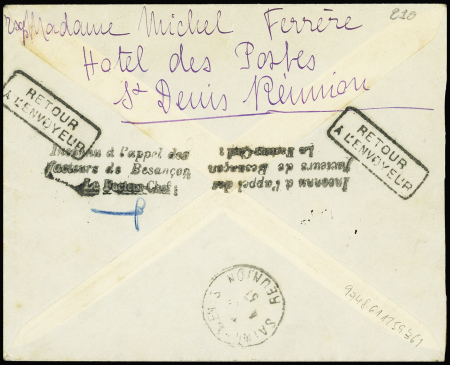 Exp Madame Michel Ferrère
Hotel des Postes
St Denis Réunion
RETOUR
A L'ENVOYEUR
RETOUR
A L'ENVOYEUR
Inconnu à l'appel des
facteurs de Besançon
Le Facteur-Chef :
Inconnu à l'appel des
facteurs de Besançon
Le Facteur-Chef :
REUNION